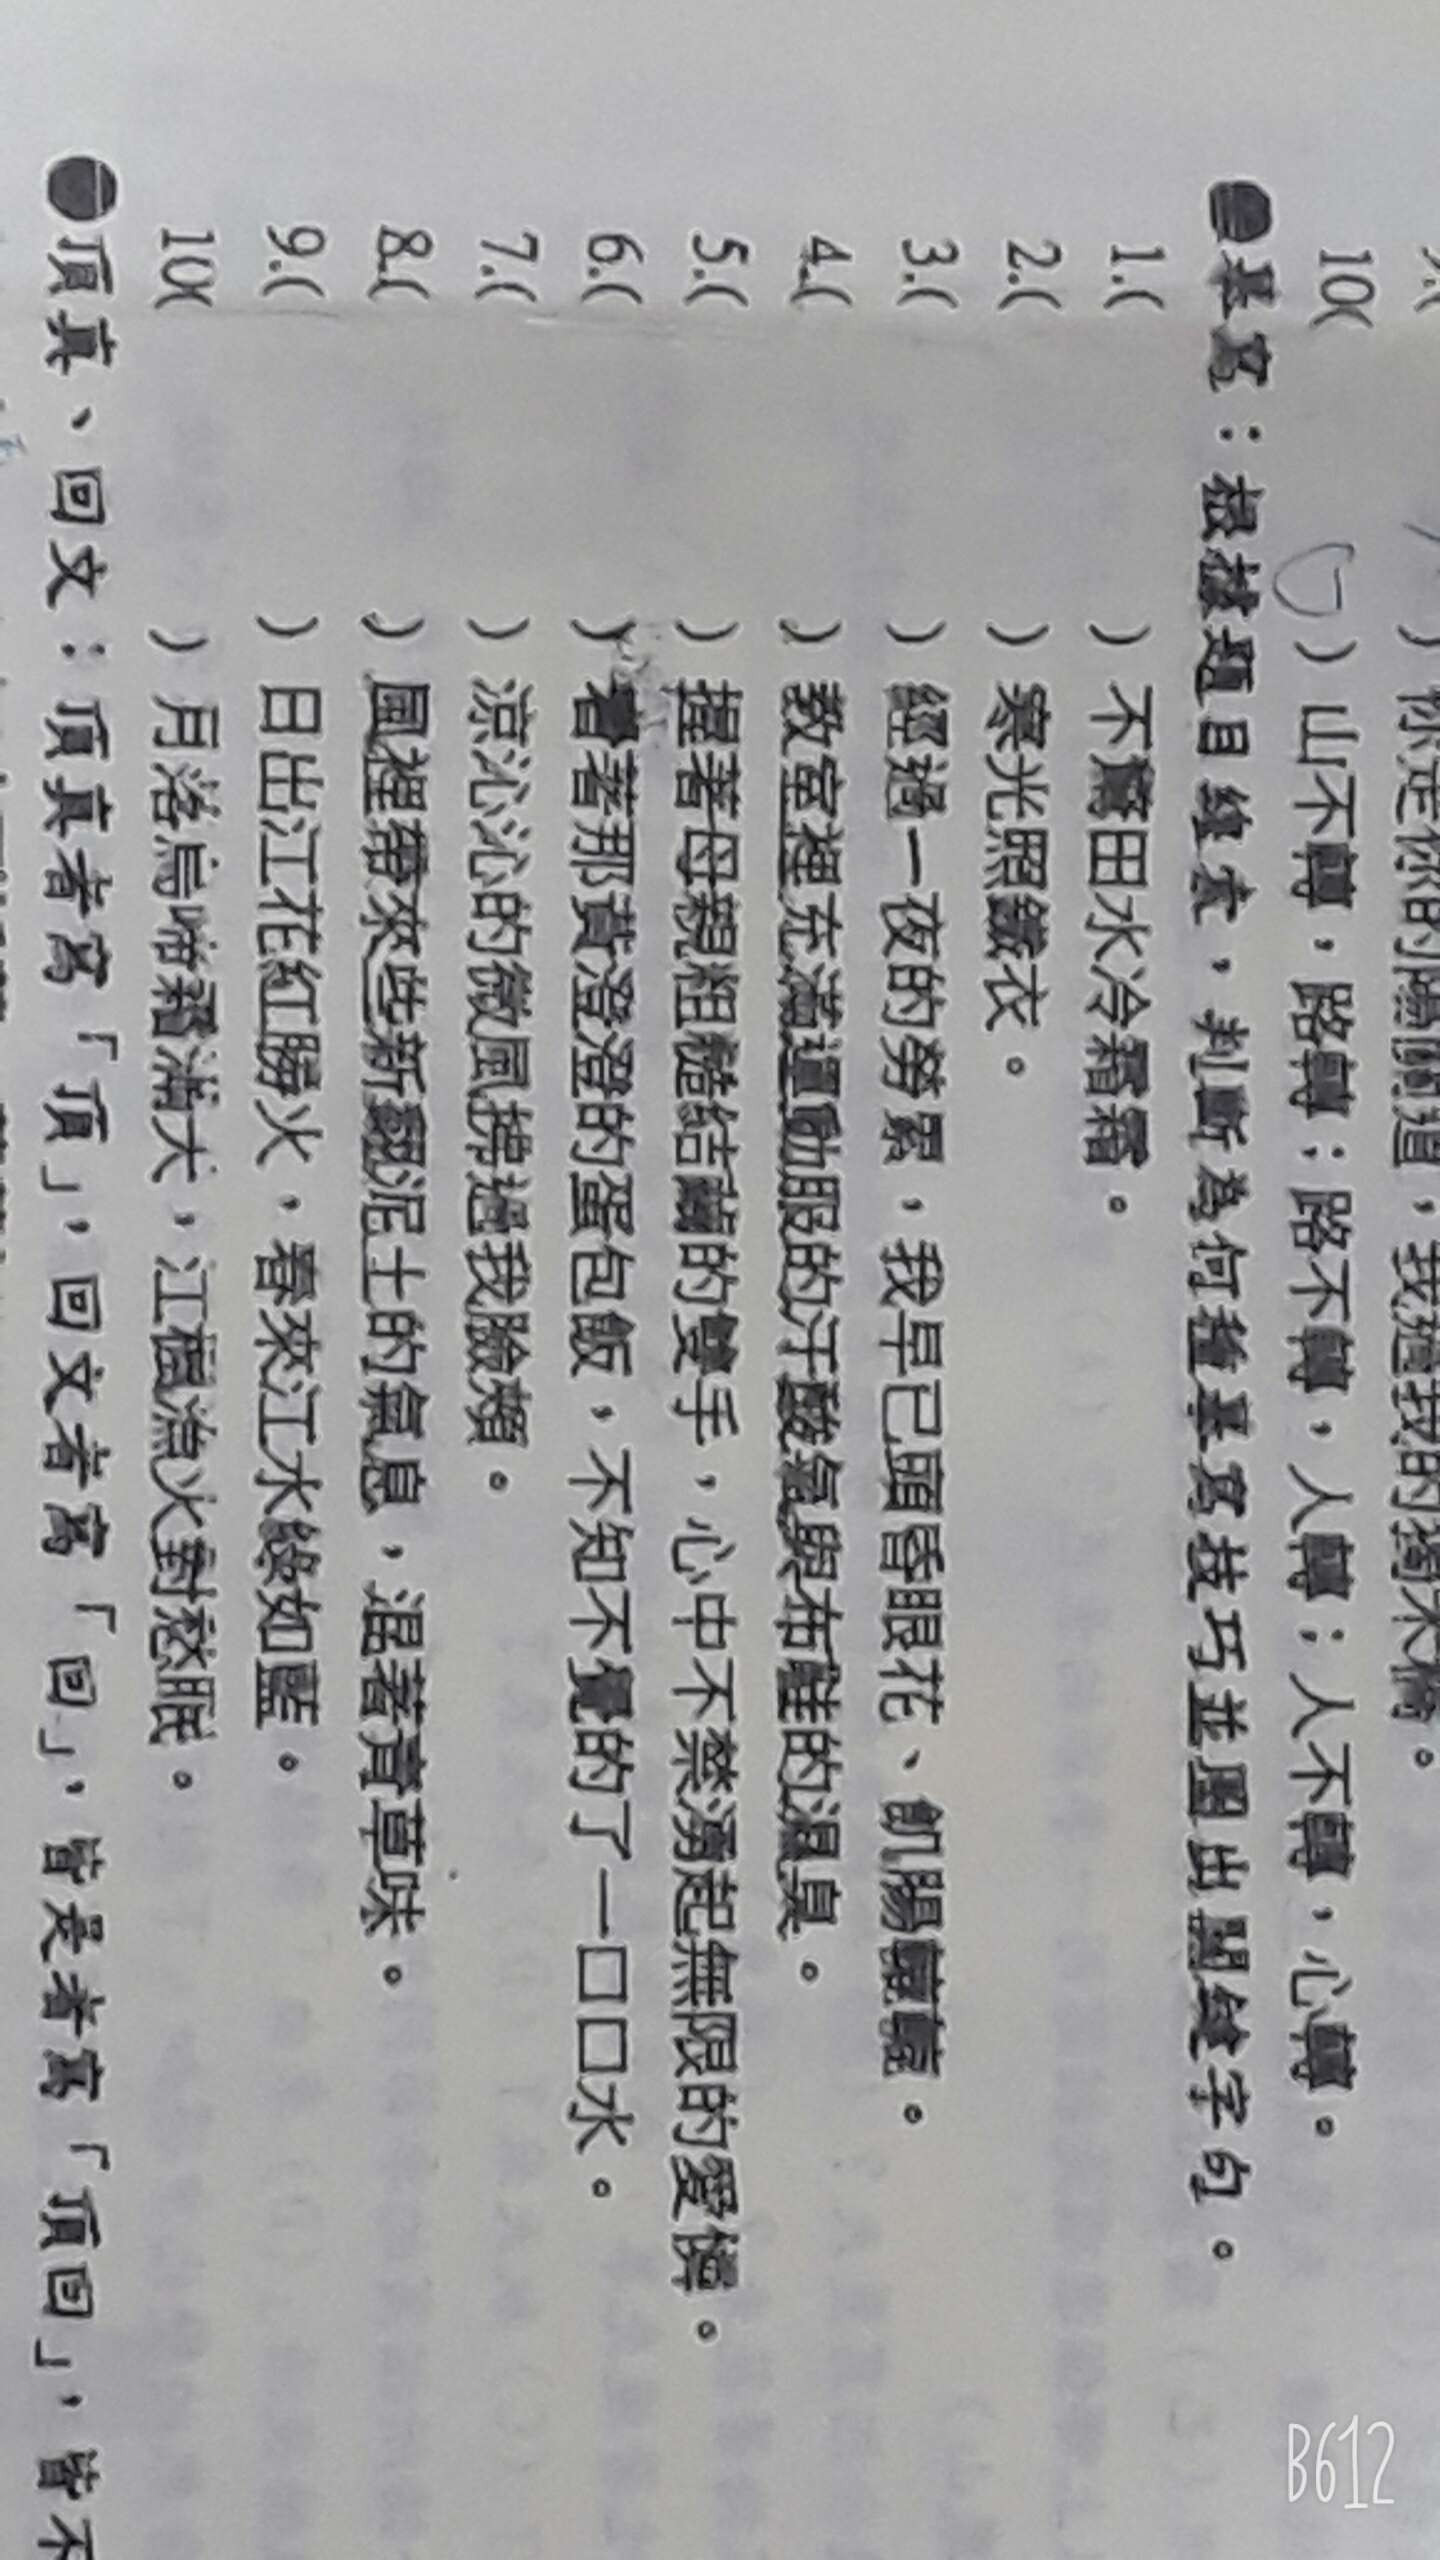 10( ）山不轉，路轉；路不轉，人轉；人不轉，心轉。
摹寫：根據題目線索，判斷為何種摹寫技巧並圈出關鍵字句。
1.( ）不驚田水冷霜霜。
2.( ）寒光照鐵衣。
3.( ）經過一夜的勞累，我早已頭昏眼花、飢腸轆轆。
4.( ）教室裡充滿運動服的汗酸氣與布鞋的濕臭。
5.( ）握著母親粗糙結繭的雙手，心中不禁湧起無限的愛憐。
6.( ）看著那黃澄澄的蛋包飯，不知不覺的了一口口水。
7.( ）涼沁沁的微風拂過我臉頰。
8.( ）風裡帶來些新翻泥土的氣息，混著青草味。
9.( ）日出江花紅勝火，春來江水綠如藍。
10( ）月落烏啼霜滿天，江楓漁火對愁眠。
頂真、回文：頂真者寫「頂」，回文者寫「回」，皆是者寫「頂回」，皆不
B612